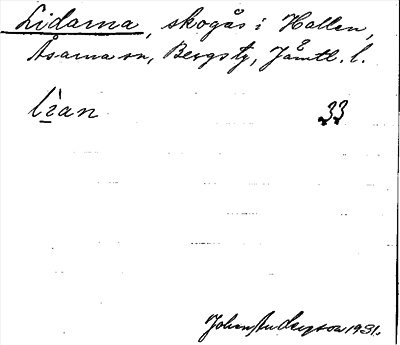 Lidarna, skogås i Hallen,
Åsarna sn, Bergs tg, Jämtl. l.
33
Johan Anderzson 1931.